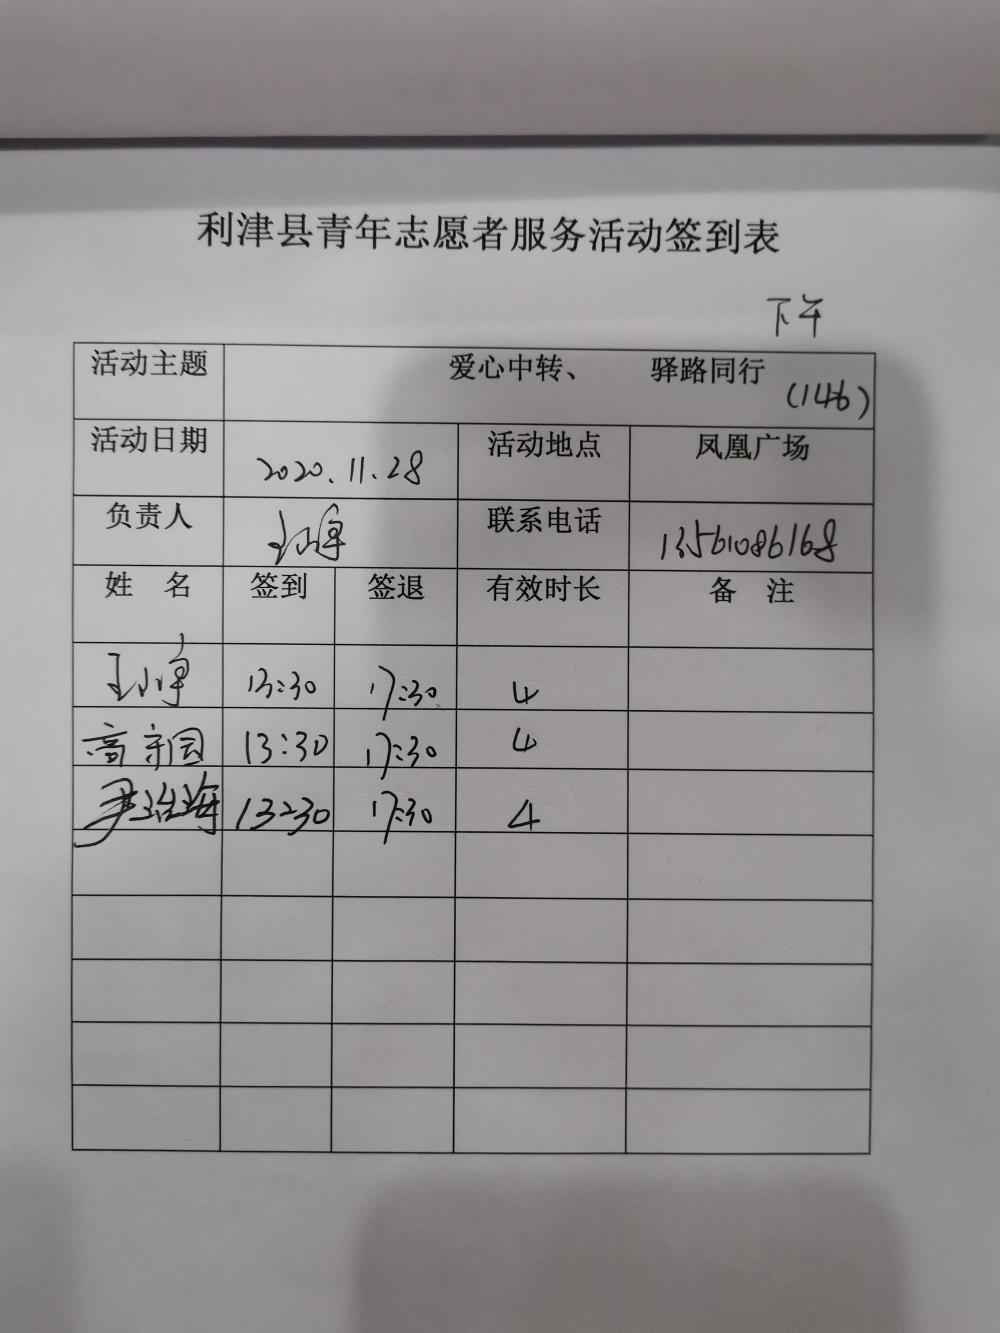 利津县青年志愿者服务活动签到表
下午
活动主题 爱心中转、 驿路同行
(146)
活动日期 2020.11.28 活动地点 凤凰广场
负责人 王小宁 联系电话 13561086168
姓 名 签到 签退 有效时长 备 注
王小宁 13:30 17:30 4
高 园 13:30 17:30 4
尹 海 13:30 17:30 4